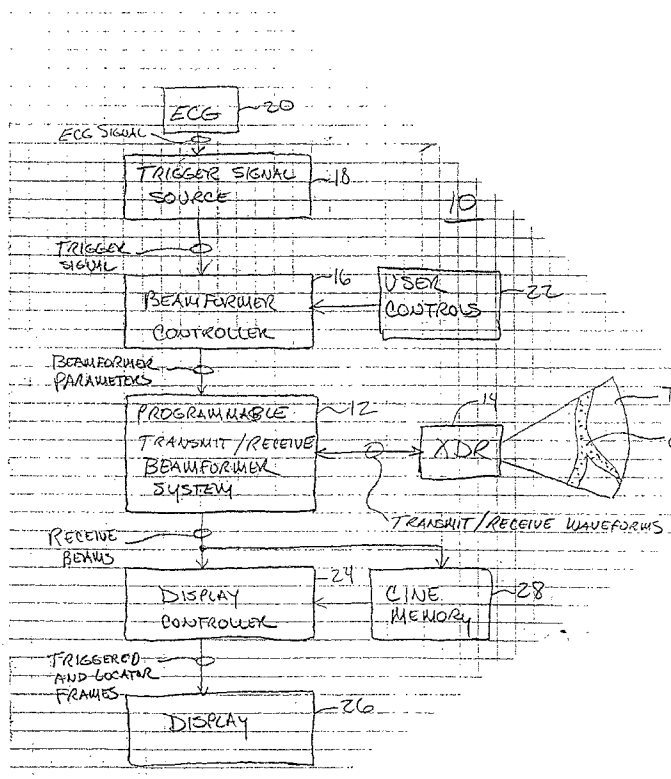 ECG
20
ECG SIGNAL
TRIGGER SIGNAL
SOURCE
18
10
TRIGGER
SIGNAL
16
BEAMFORMER
CONTROLLER
USER
CONTROLS
22
BEAMFORMER
PARAMETERS
PROGRAMMABLE
TRANSMIT/RECEIVE
BEAMFORMER
SYSTEM
12
14
XDR
TRANSMIT/RECEIVE WAVEFORMS
RECEIVE
BEAMS
DISPLAY
CONTROLLER
24
CINE
MEMORY
28
TRIGGERED
AND LOCATOR
FRAMES
DISPLAY
26